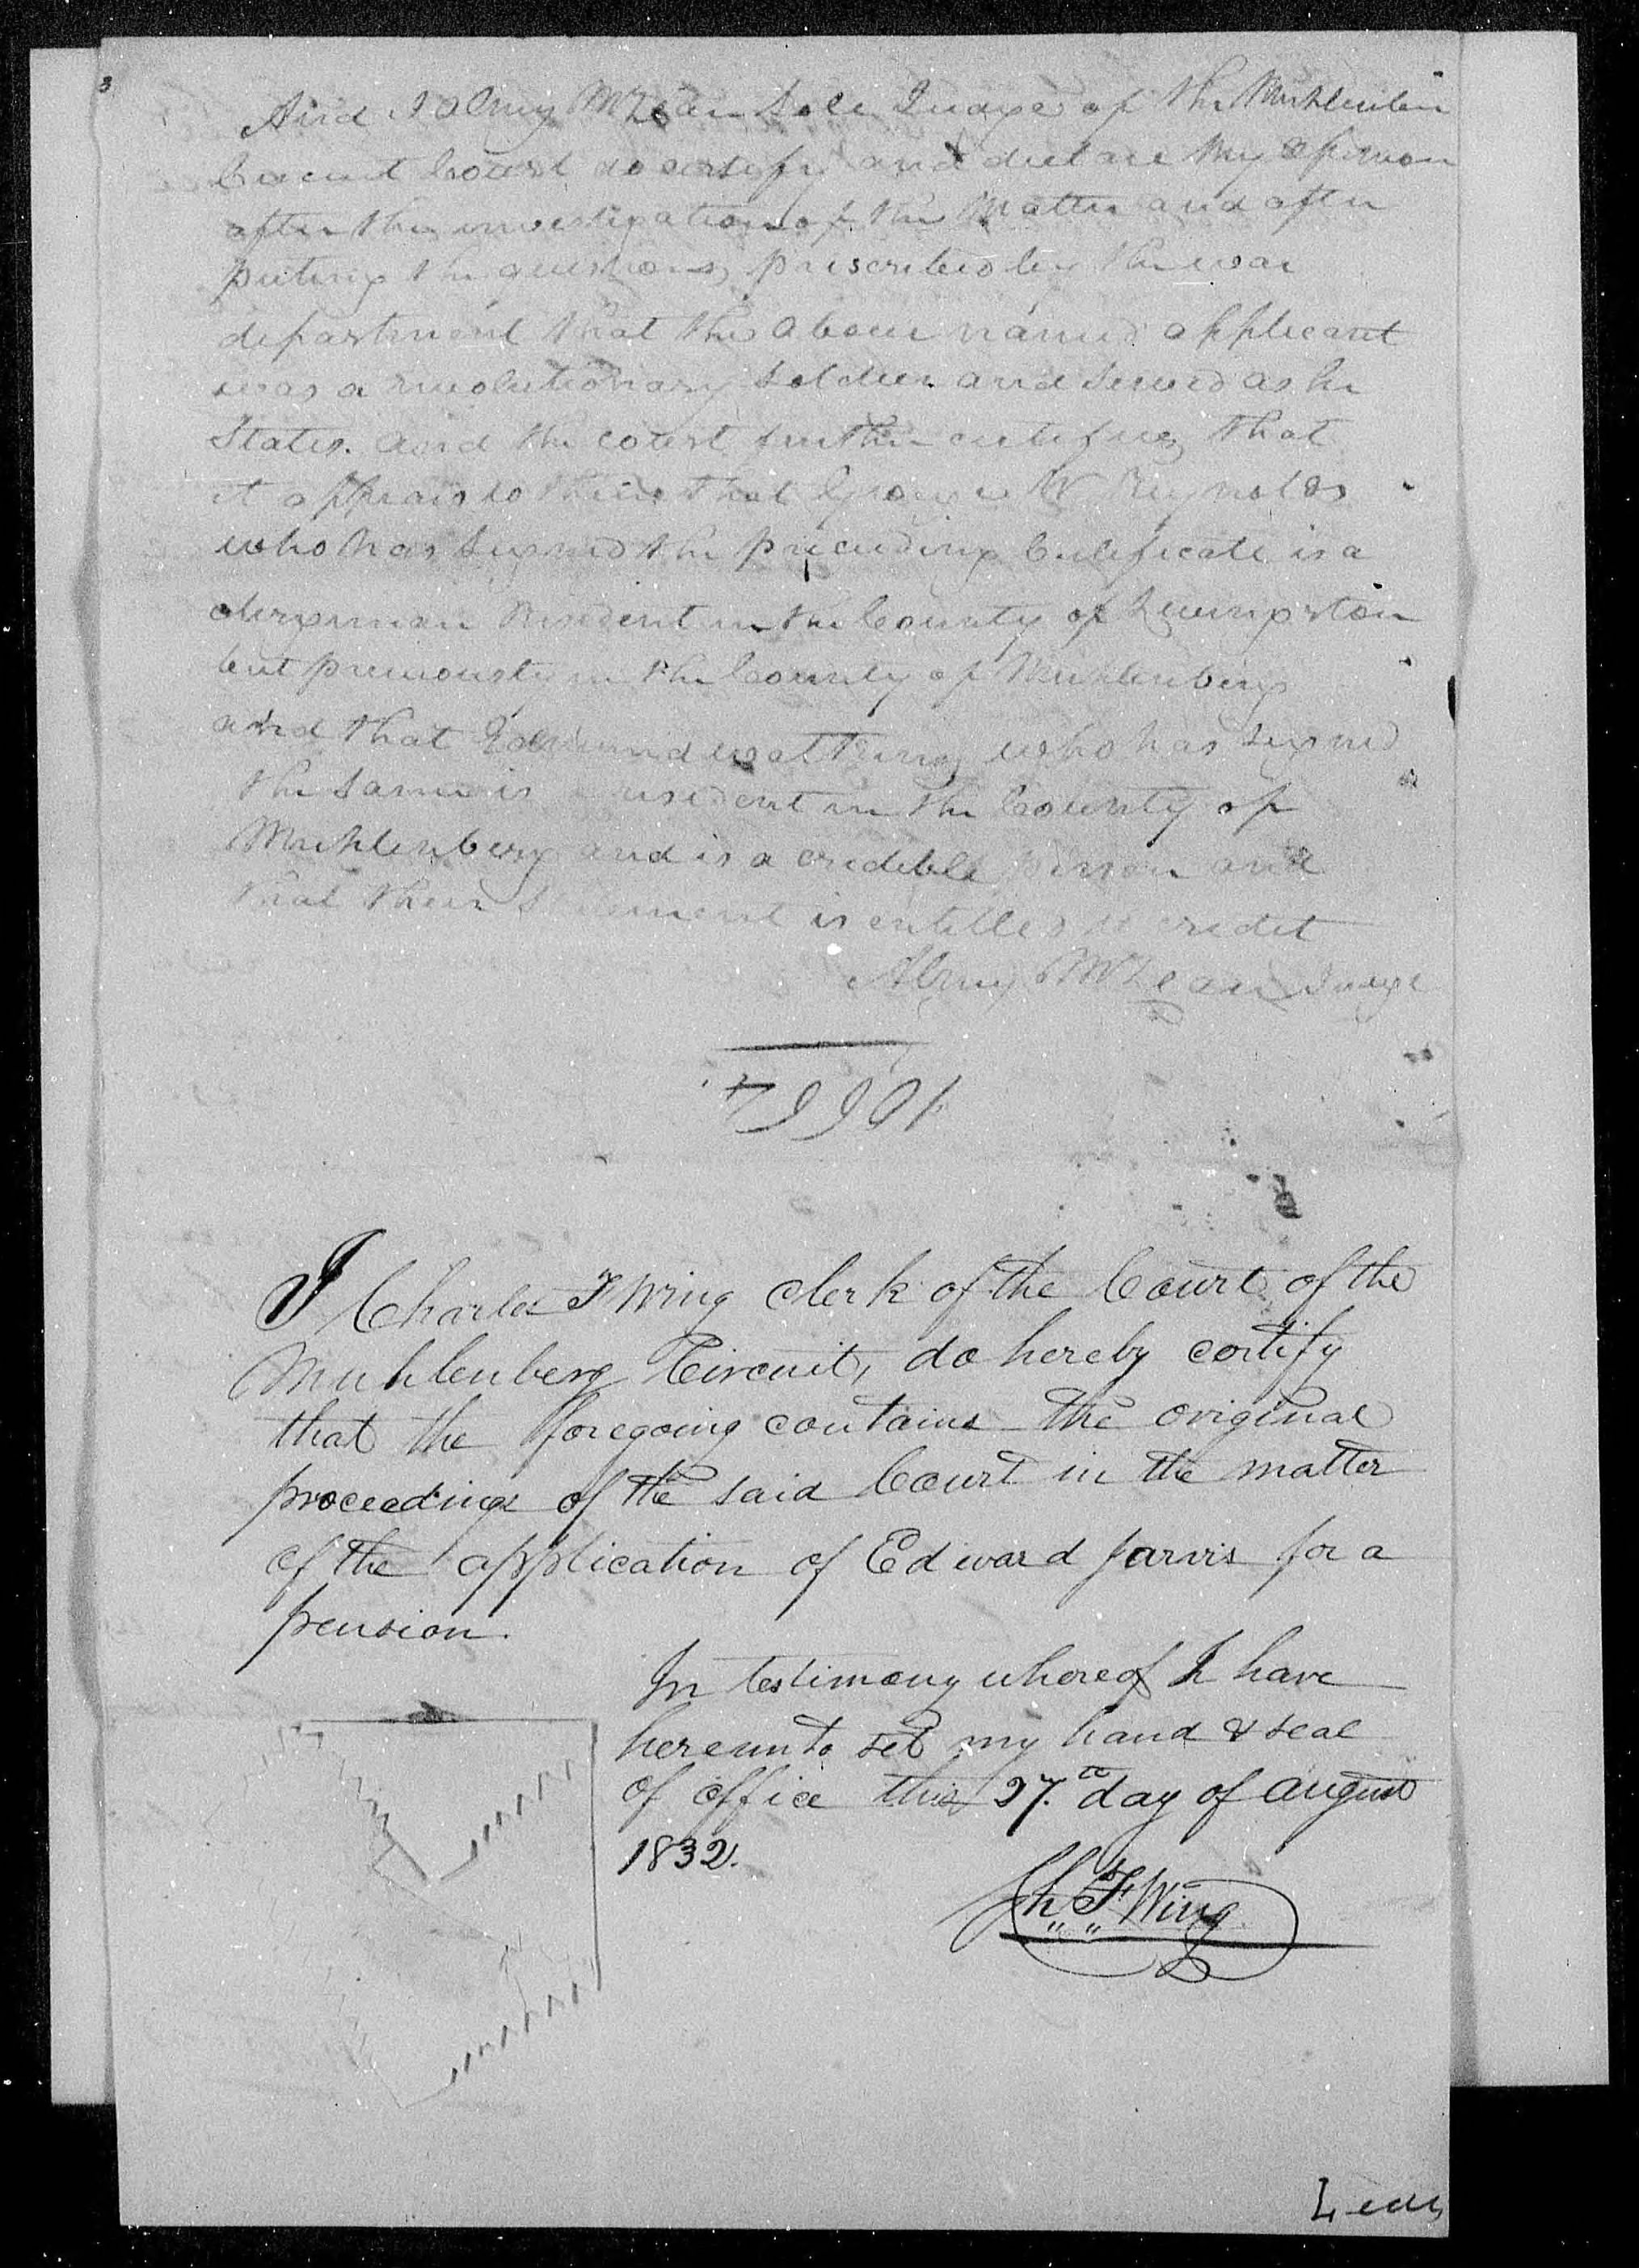 And I Alney McLean Sole Judge of the Muhlenberg
Circuit Court do certify and declare my opinion
after the investigation of the Matter and after
puting the questions priscribed by the war
department that the above named applicant
was a revolutionary Soldier and served as he
States. and the court further certifies that
it appears to them that George W Reynolds
who has signed the preceeding Certificate is a
clergyman resident in the County of Livingston
but previously in the County of Muhlenberg
and that Edmund Watkins who has signed
the same is a resident in the County of
Muhlenberg and is a credible person and
that their Statement is entitled to credit
Alney McLean Judge
I Charles F Wing clerk of the Court of the
Muhlenberg Circuit, do hereby certify
that the foregoing contains the original
proceedings of the said Court in the matter
of the application of Edward Jarvis for a
pension.
In testimony whereof I have
hereunto set my hand & seal
of office this 27.th day of august
1832.
Ch F Wing